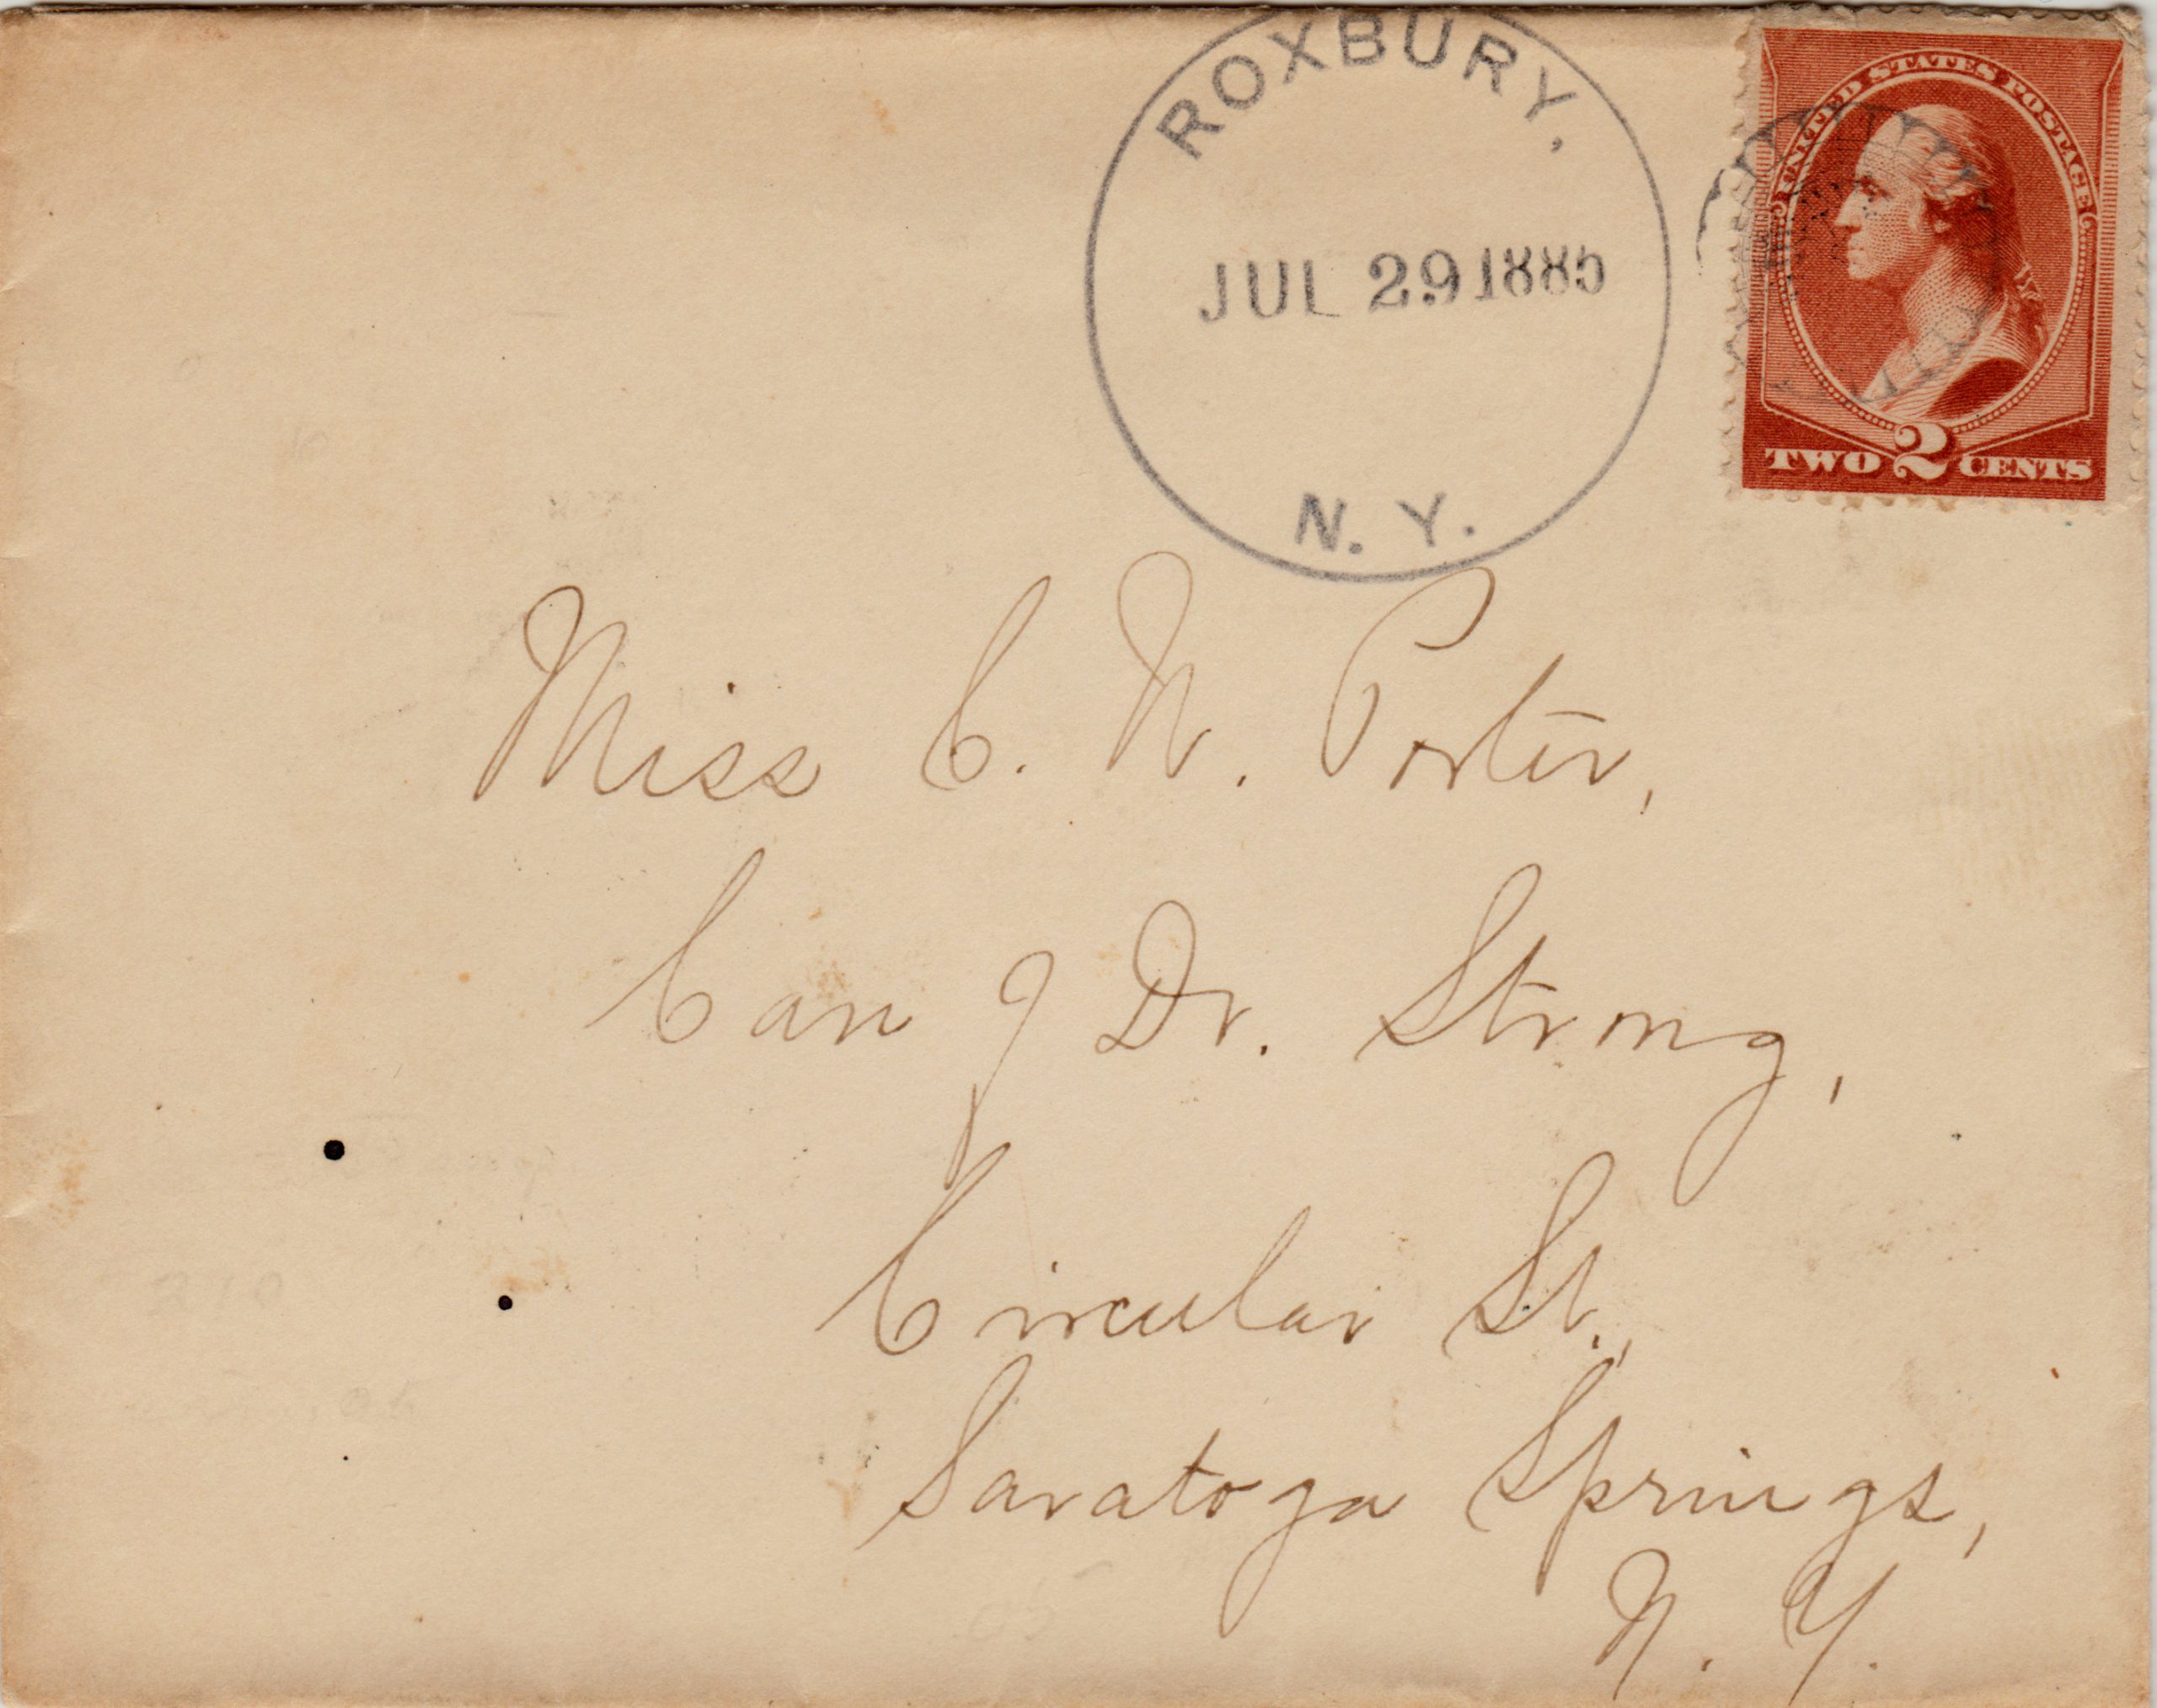 ROXBURY,
JUL 29 1885
N. Y.
UNITED STATES POSTAGE
TWO 2 CENTS
Miss C. N. Porter,
Care of Dr. Strong,
Circular St.,
Saratoga Springs,
N. Y.